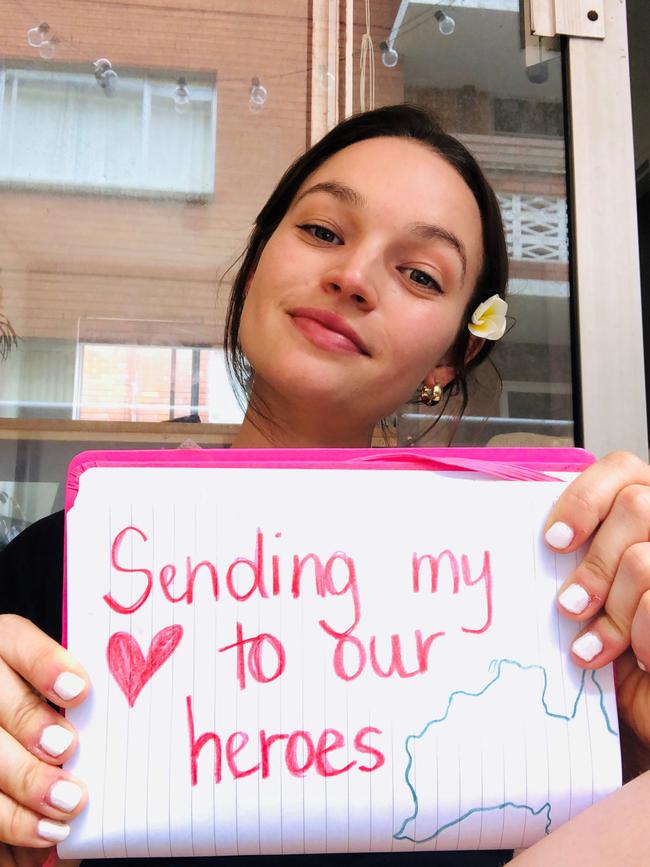 Sending my
♥ to our
heroes